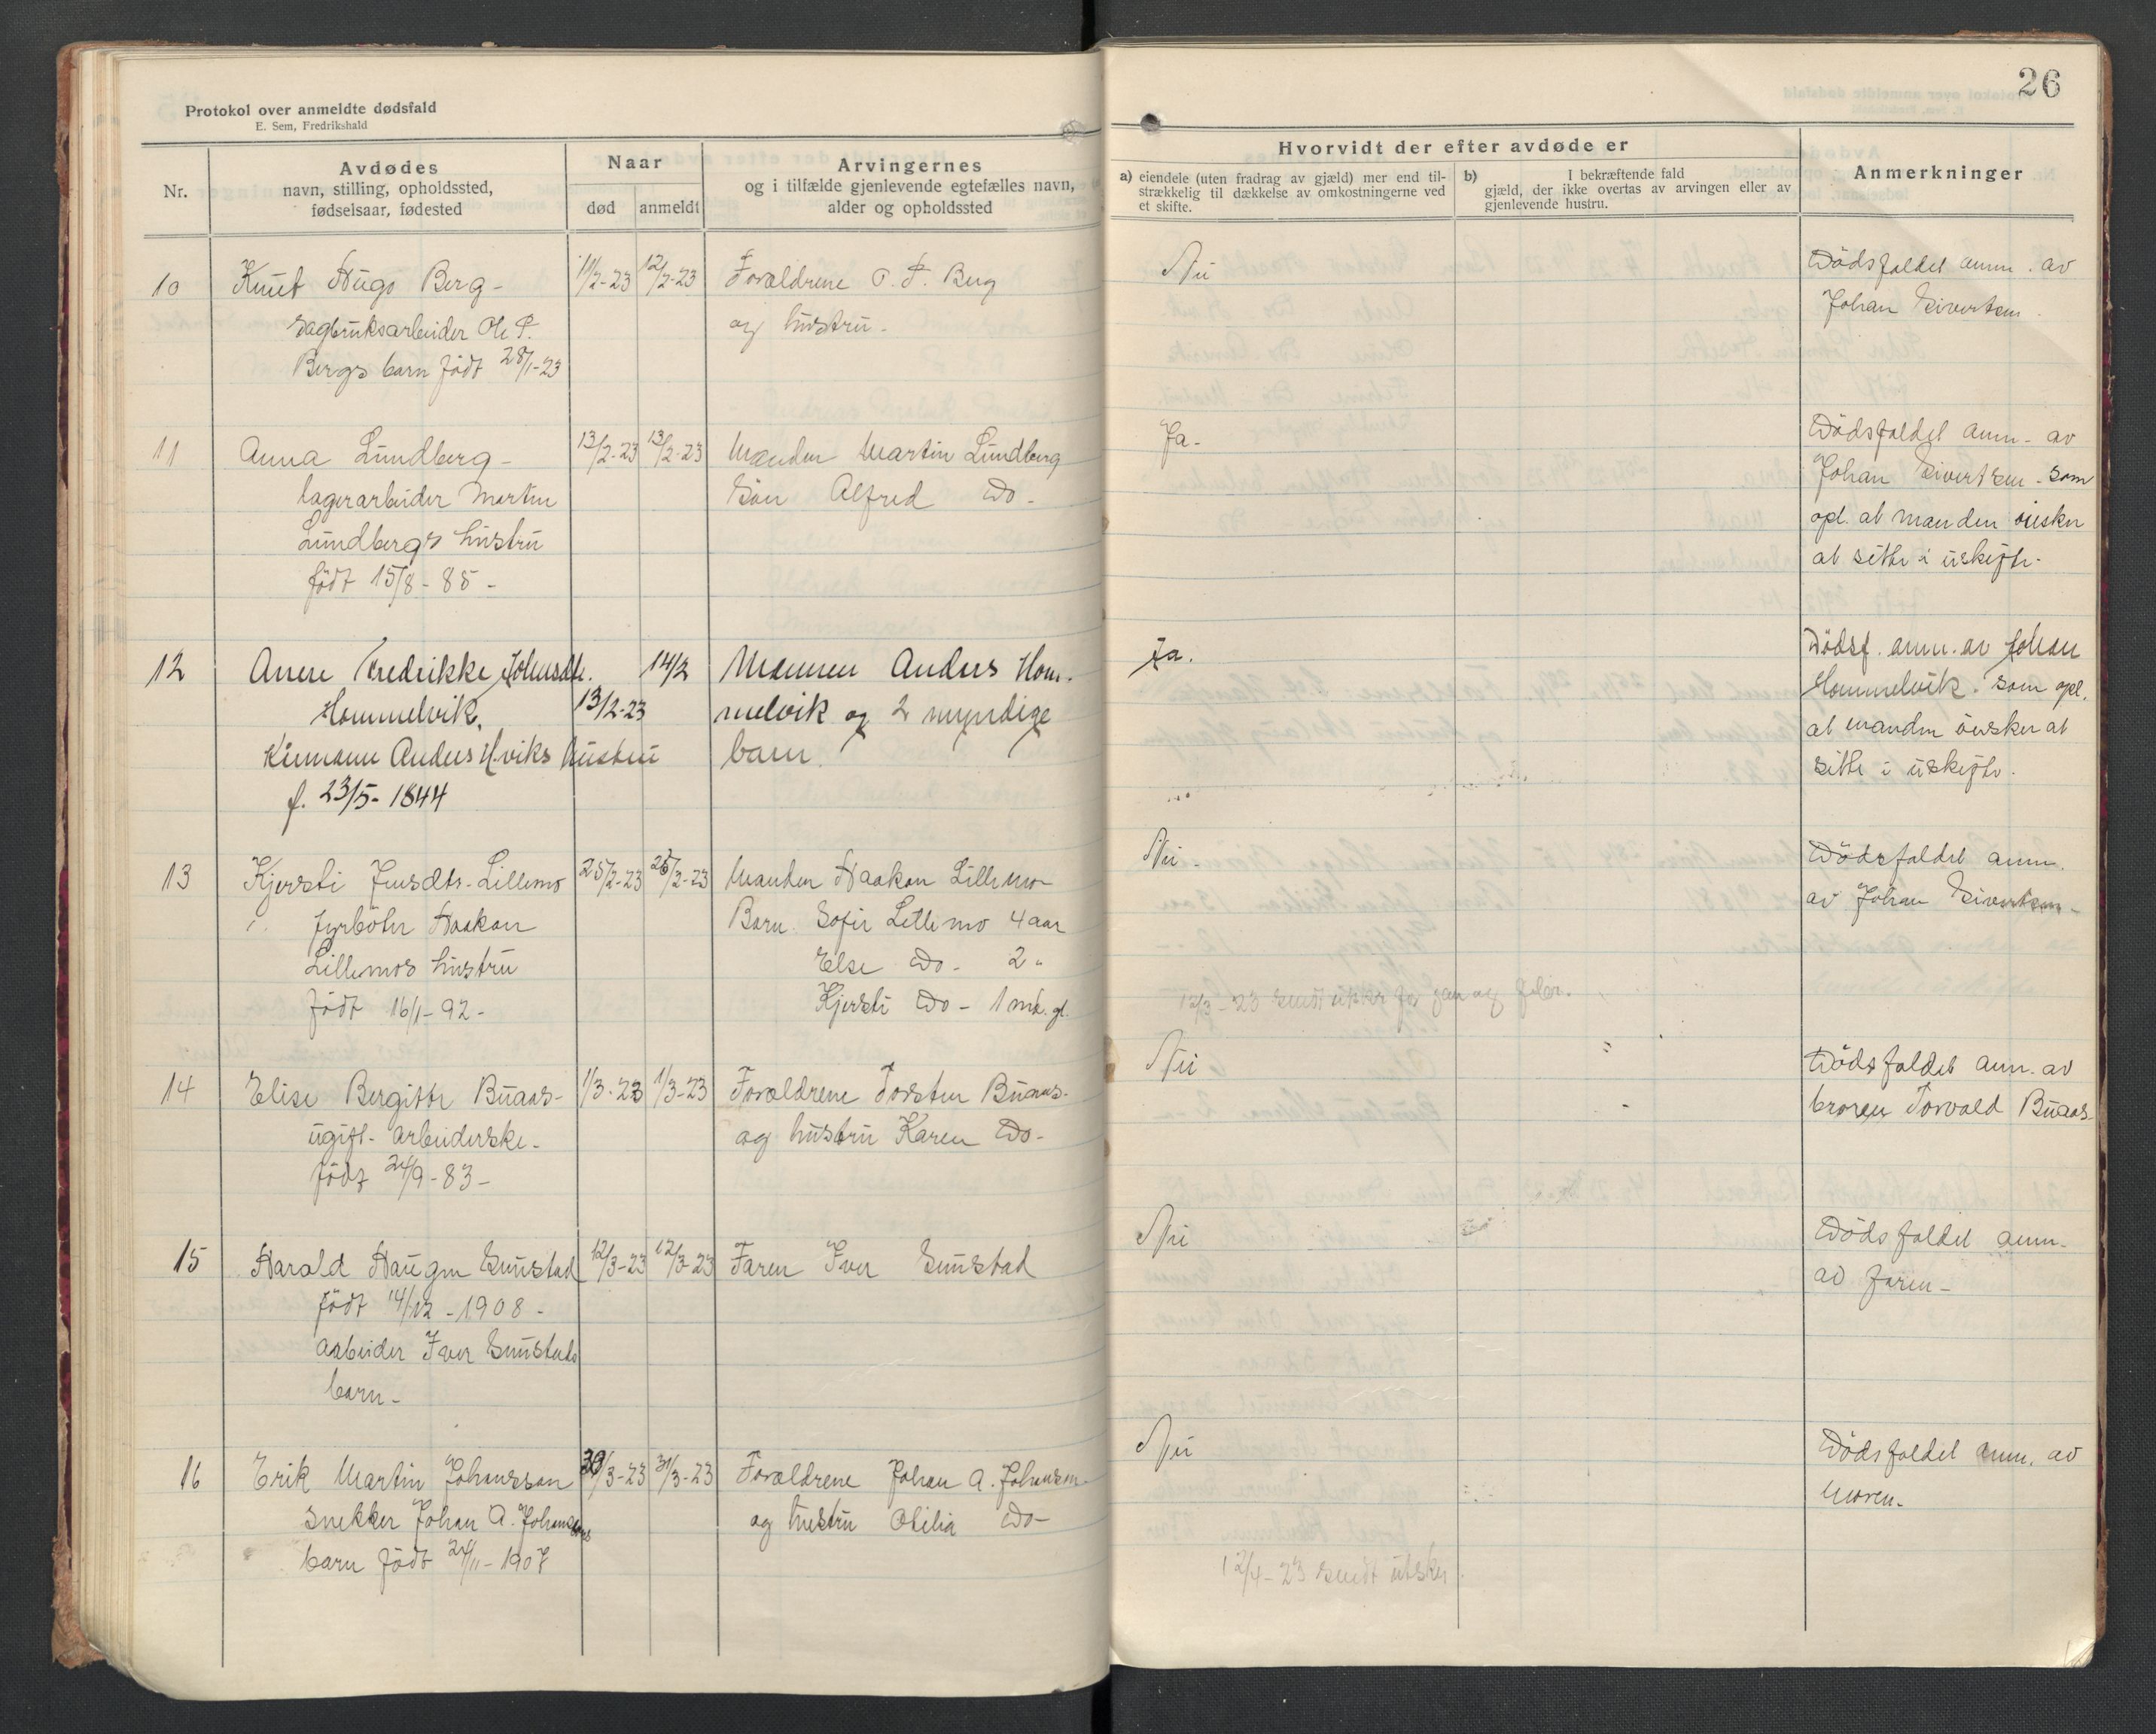 26
Protokol over anmeldte dødsfald
E. Sem, Fredrikshald
Nr.
Avdødes
navn, stilling, opholdssted,
fødselsaar, fødested
Naar
død
anmeldt
Arvingernes
og i tilfælde gjenlevende egtefælles navn,
alder og opholdssted
Hvorvidt der efter avdøde er
a) eiendele (uten fradrag av gjæld) mer end til-
strækkelig til dækkelse av omkostningerne ved
et skifte.
b) I bekræftende fald
gjæld, der ikke overtas av arvingen eller av
gjenlevende hustru.
Anmerkninger
10 Knut Hugo Berg - 11/2-23 12/2-23 Forældrene O. P. Berg Nei Dödsfaldet anm. av
sagbruksarbeider Ole P. og hustru. Johan Sivertsen.
Bergs barn födt 28/1-23
11 Anna Lundberg - 13/2-23 13/2-23 Manden Martin Lundberg Ja- Dödsfaldet anm. av
lagerarbeider Martin Sön Alfred Do- Johan Sivertsen - som
Lundbergs hustru opl. at manden önsker
födt 15/8-85- at sitte i uskifte-
12 Anne Fredrikke Johnsdtr. 14/2 Mannen Anders Hom- Ja. Dödsf. anm. av Johan
Hommelvik. 13/2-23 melvik og 2 myndige Hommelvik. som opl.
Anders H.viks hustru barn. at manden önsker at
f. 23/5-1844 sitte i uskifte.
13 Kjersti Jensdtr. Lillemo 25/2-23 26/2-23 Manden Haakon Lillemo Nei- Dödsfaldet anm.
fyrböter Haakon Barn Sofie Lillemo 4 aar av Johan Sivertsen-
Lillemos hustru Else Do- 2 "
födt 16/1-92- Kjersti Do- 1 md. gl.
12/3-23 sendt
14 Elise Bergitte Buaas- 1/3-23 1/3-23 Forældrene Torsten Buaas- Nei Dödsfaldet anm. av
ugift- arbeiderske- og hustru Karen Do- broren Torvald Buaas-
födt 24/9-83-
15 Harald Haugen Sunstad 12/3-23 12/3-23 Faren Iver Sunstad Nei Dödsfaldet anm.
födt 14/12-1908- av faren-
arbeider Iver Sunstads
barn-
16 Erik Martin Johanssen 30/3-23 31/3-23 Forældrene Johan A. Johansen- Nei Dödsfaldet anm. av
snekker Johan A. Johansens og hustru Otilia Do- Moren-
barn födt 24/11-1907
12/4-23 sendt utskr.